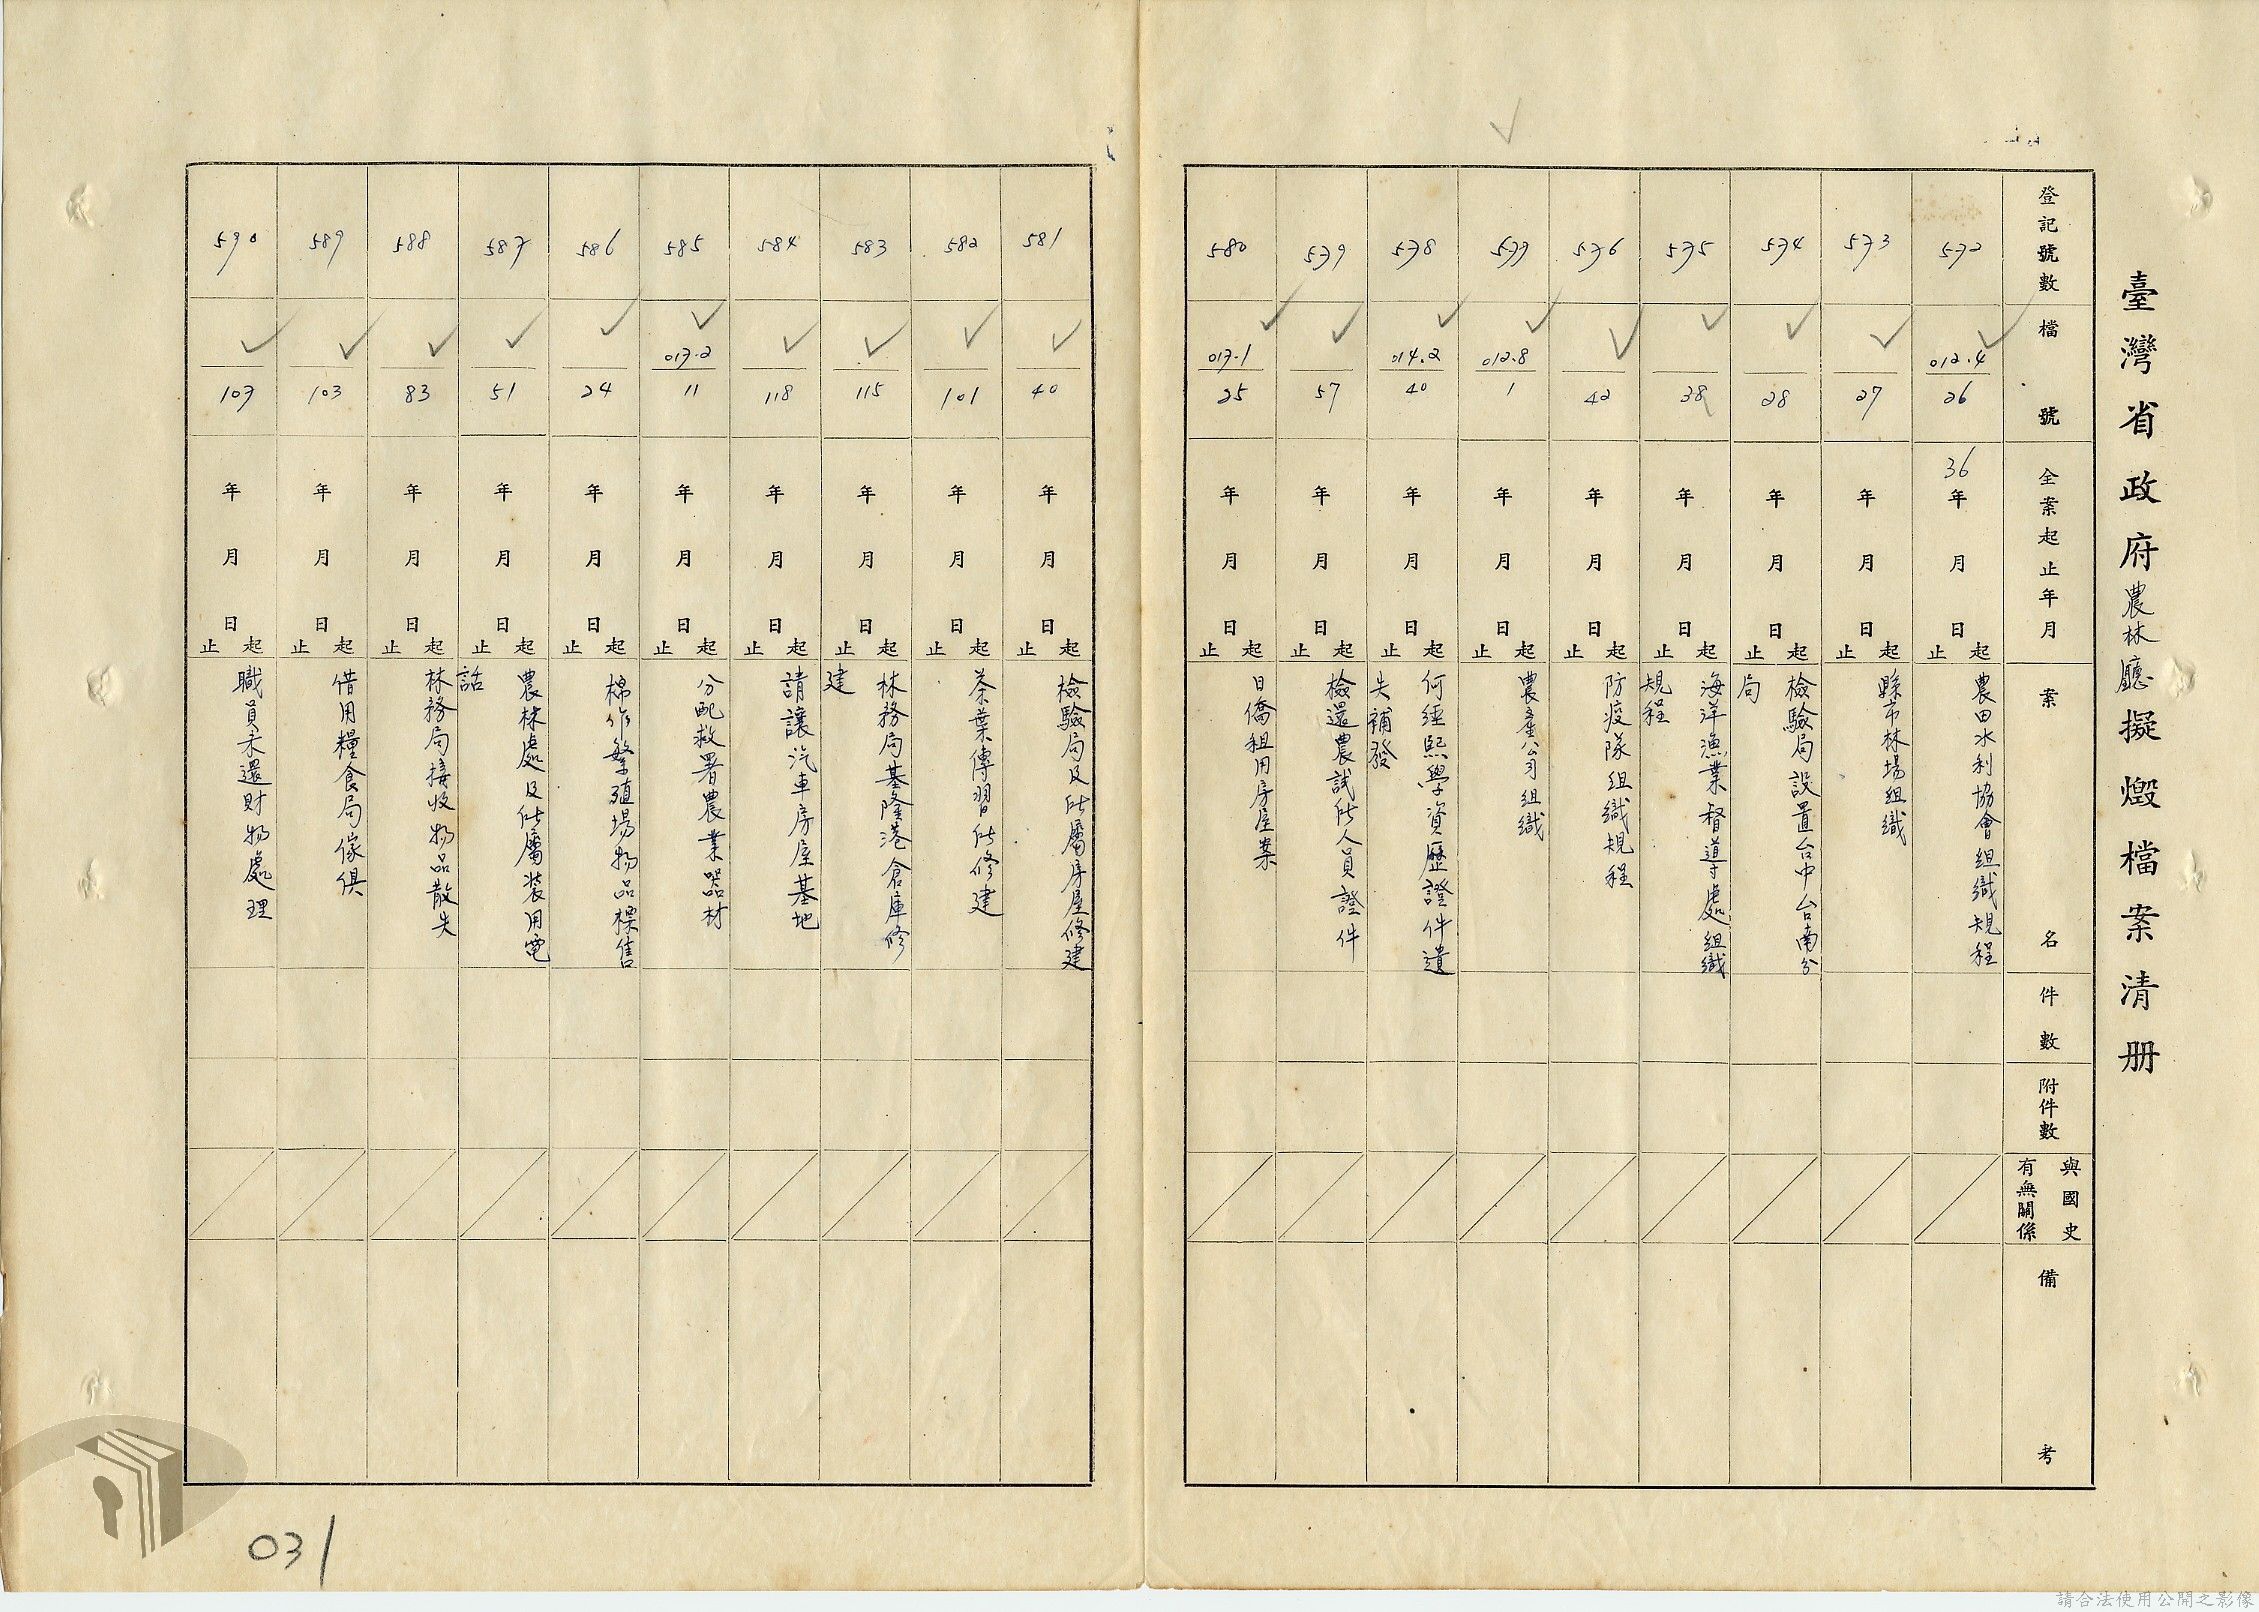 臺灣省政府農林廳擬燬檔案清册
登記號數 檔號 全案起止年月 案名 件數 附件數 與國史有無關係 備考
572 012.4/26 36年月日起止 農田水利協會組織規程
573 27 年月日起止 縣市林場組織
574 28 年月日起止 檢驗局設置台中台南分局
575 38 年月日起止 海洋漁業督導處組織規程
576 42 年月日起止 防疫隊組織規程
577 012.8/1 年月日起止 農產公司組織
578 014.2/40 年月日起止 何經熙學資歷證件遺失補發
579 57 年月日起止 檢還農試所人員證件
580 017.1/25 年月日起止 日僑租用房屋案
581 40 年月日起止 檢驗局及所屬房屋修建
582 101 年月日起止 茶葉傳習所修建
583 115 年月日起止 林務局基隆港倉庫修建
584 118 年月日起止 請讓汽車房屋基地
585 017.2/11 年月日起止 分配救署農業器材
586 24 年月日起止 棉作繁殖場物品標售
587 51 年月日起止 農林處及所屬裝用電話
588 83 年月日起止 林務局接收物品散失
589 103 年月日起止 借用糧食局傢俱
590 107 年月日起止 職員未還財物處理
031
請合法使用公開之影像